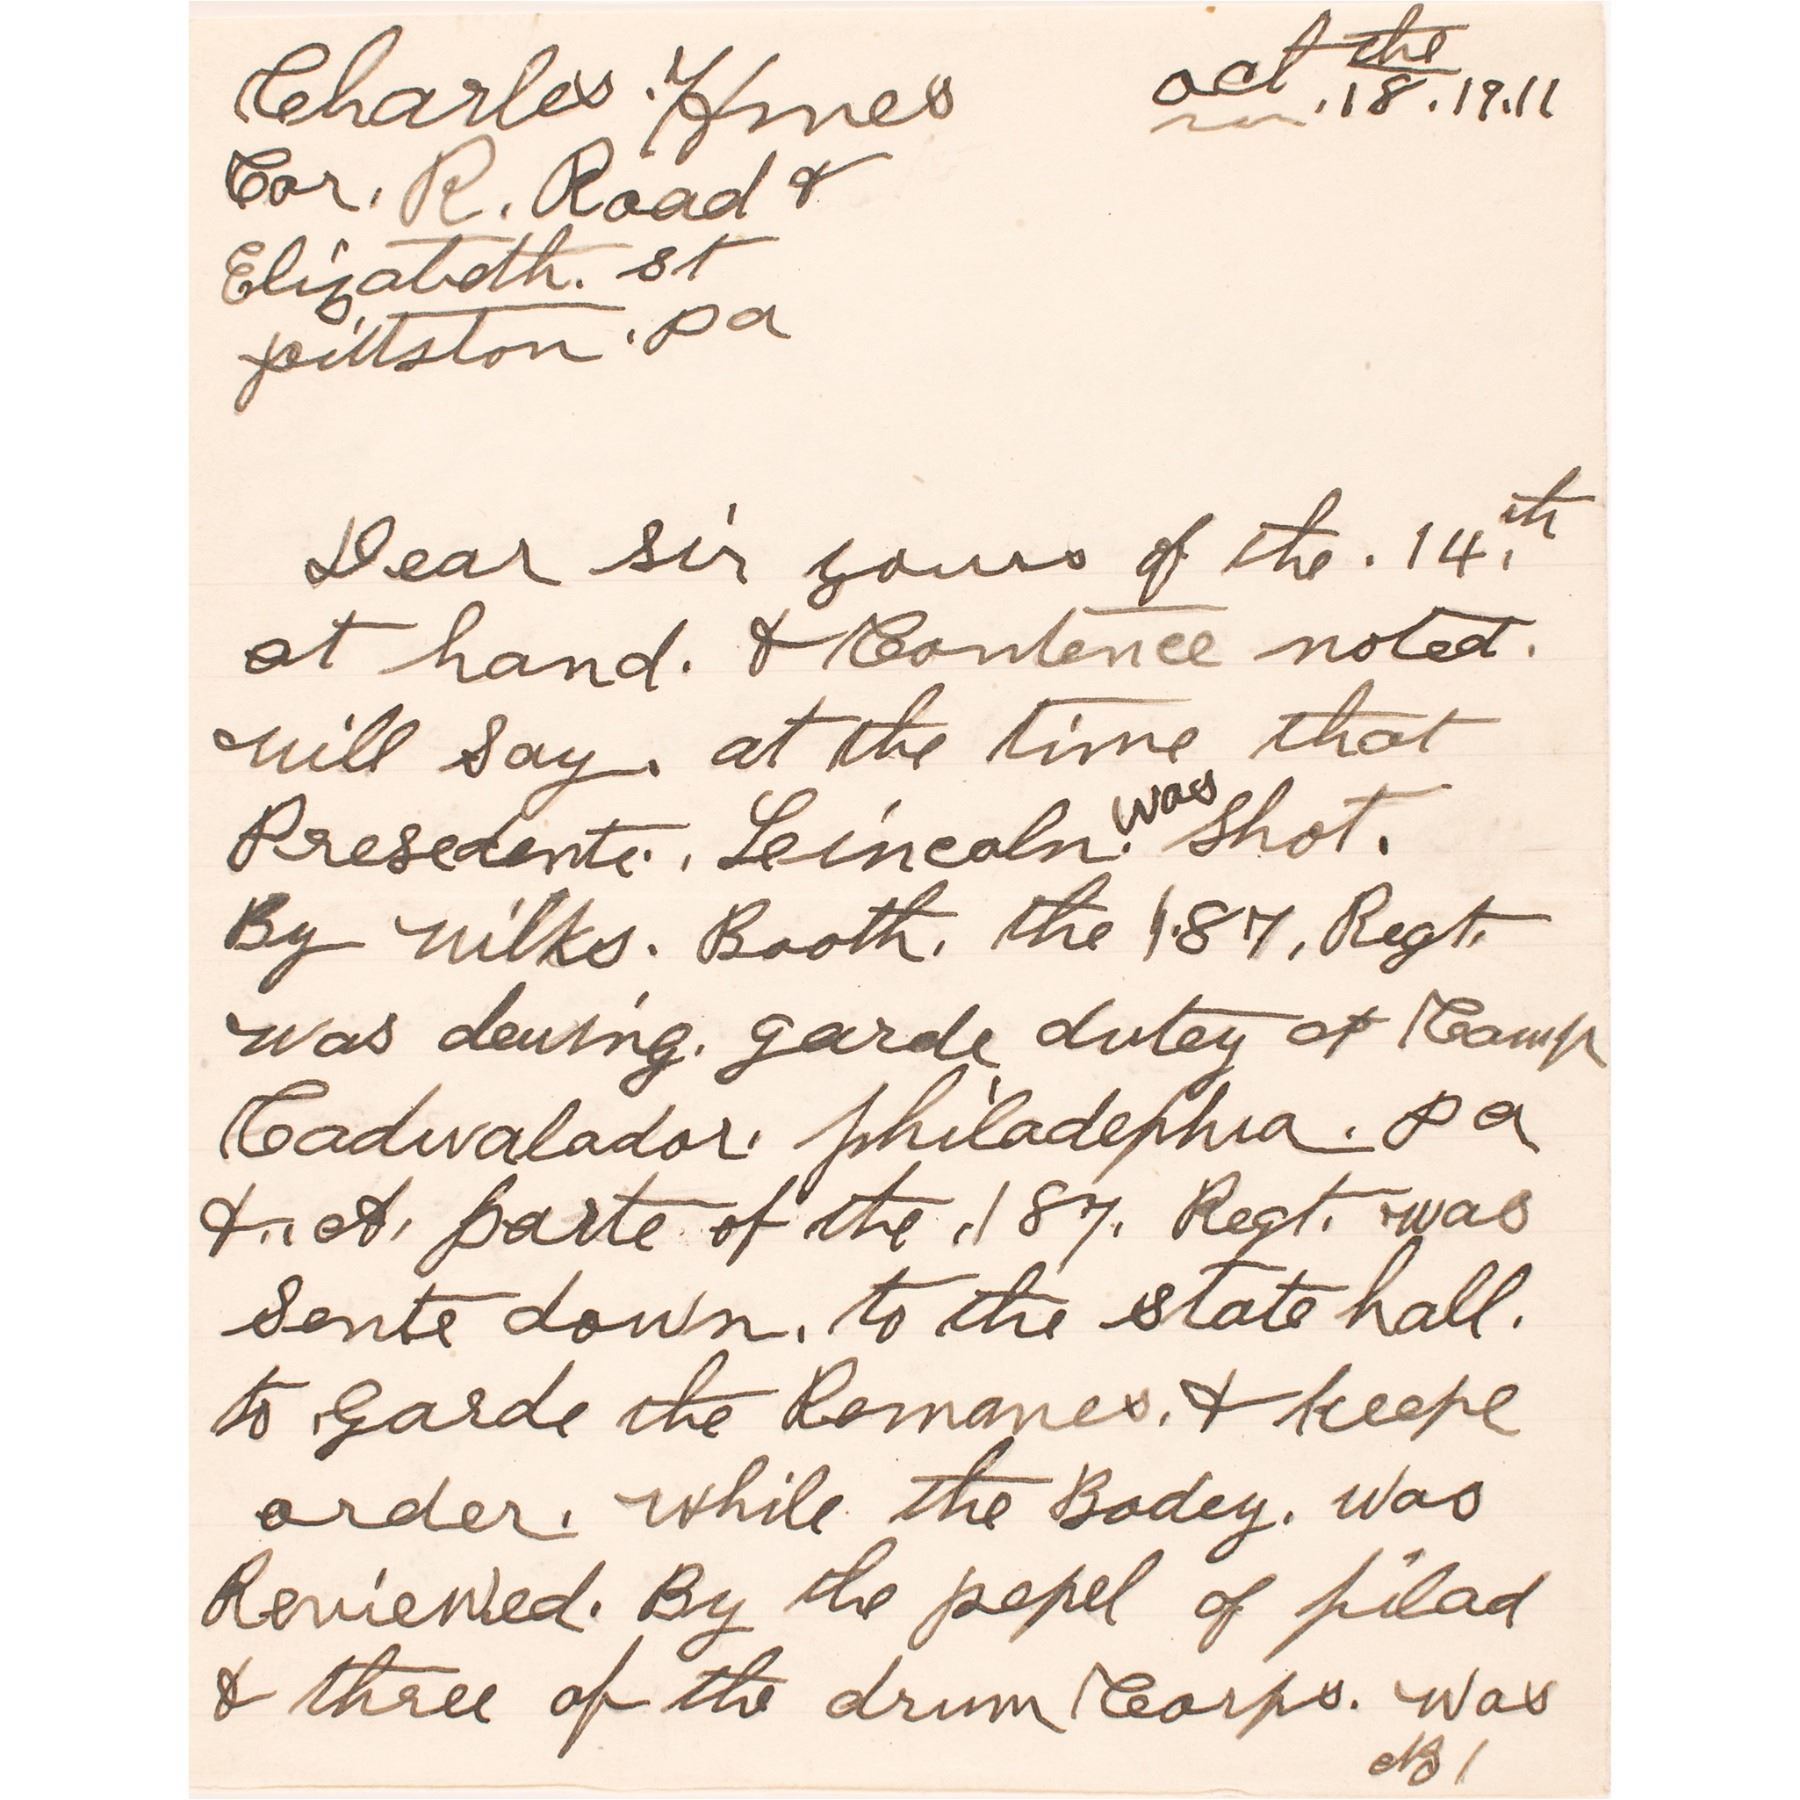 Charles. Hynes
oct the 18. 19.11
Cor. R. Road &
Elizabeth. st
pittston. pa
Dear sir yours of the. 14.th
at hand. & Contence noted.
will say. at the time that
Presedente. Leincoln. was shot.
By wilks. Booth. the 187, Regt.
was dewing. garde dutey at Camp
Cadwalador. philadephia. pa
&. A. parte of the .187. Regt. was
sente down. to the state hall.
to garde the Romanes. & keepe
order. while the Bodey. was
Reviewed. By the pepel of pilad
& three of the drum Corps. was
No 1